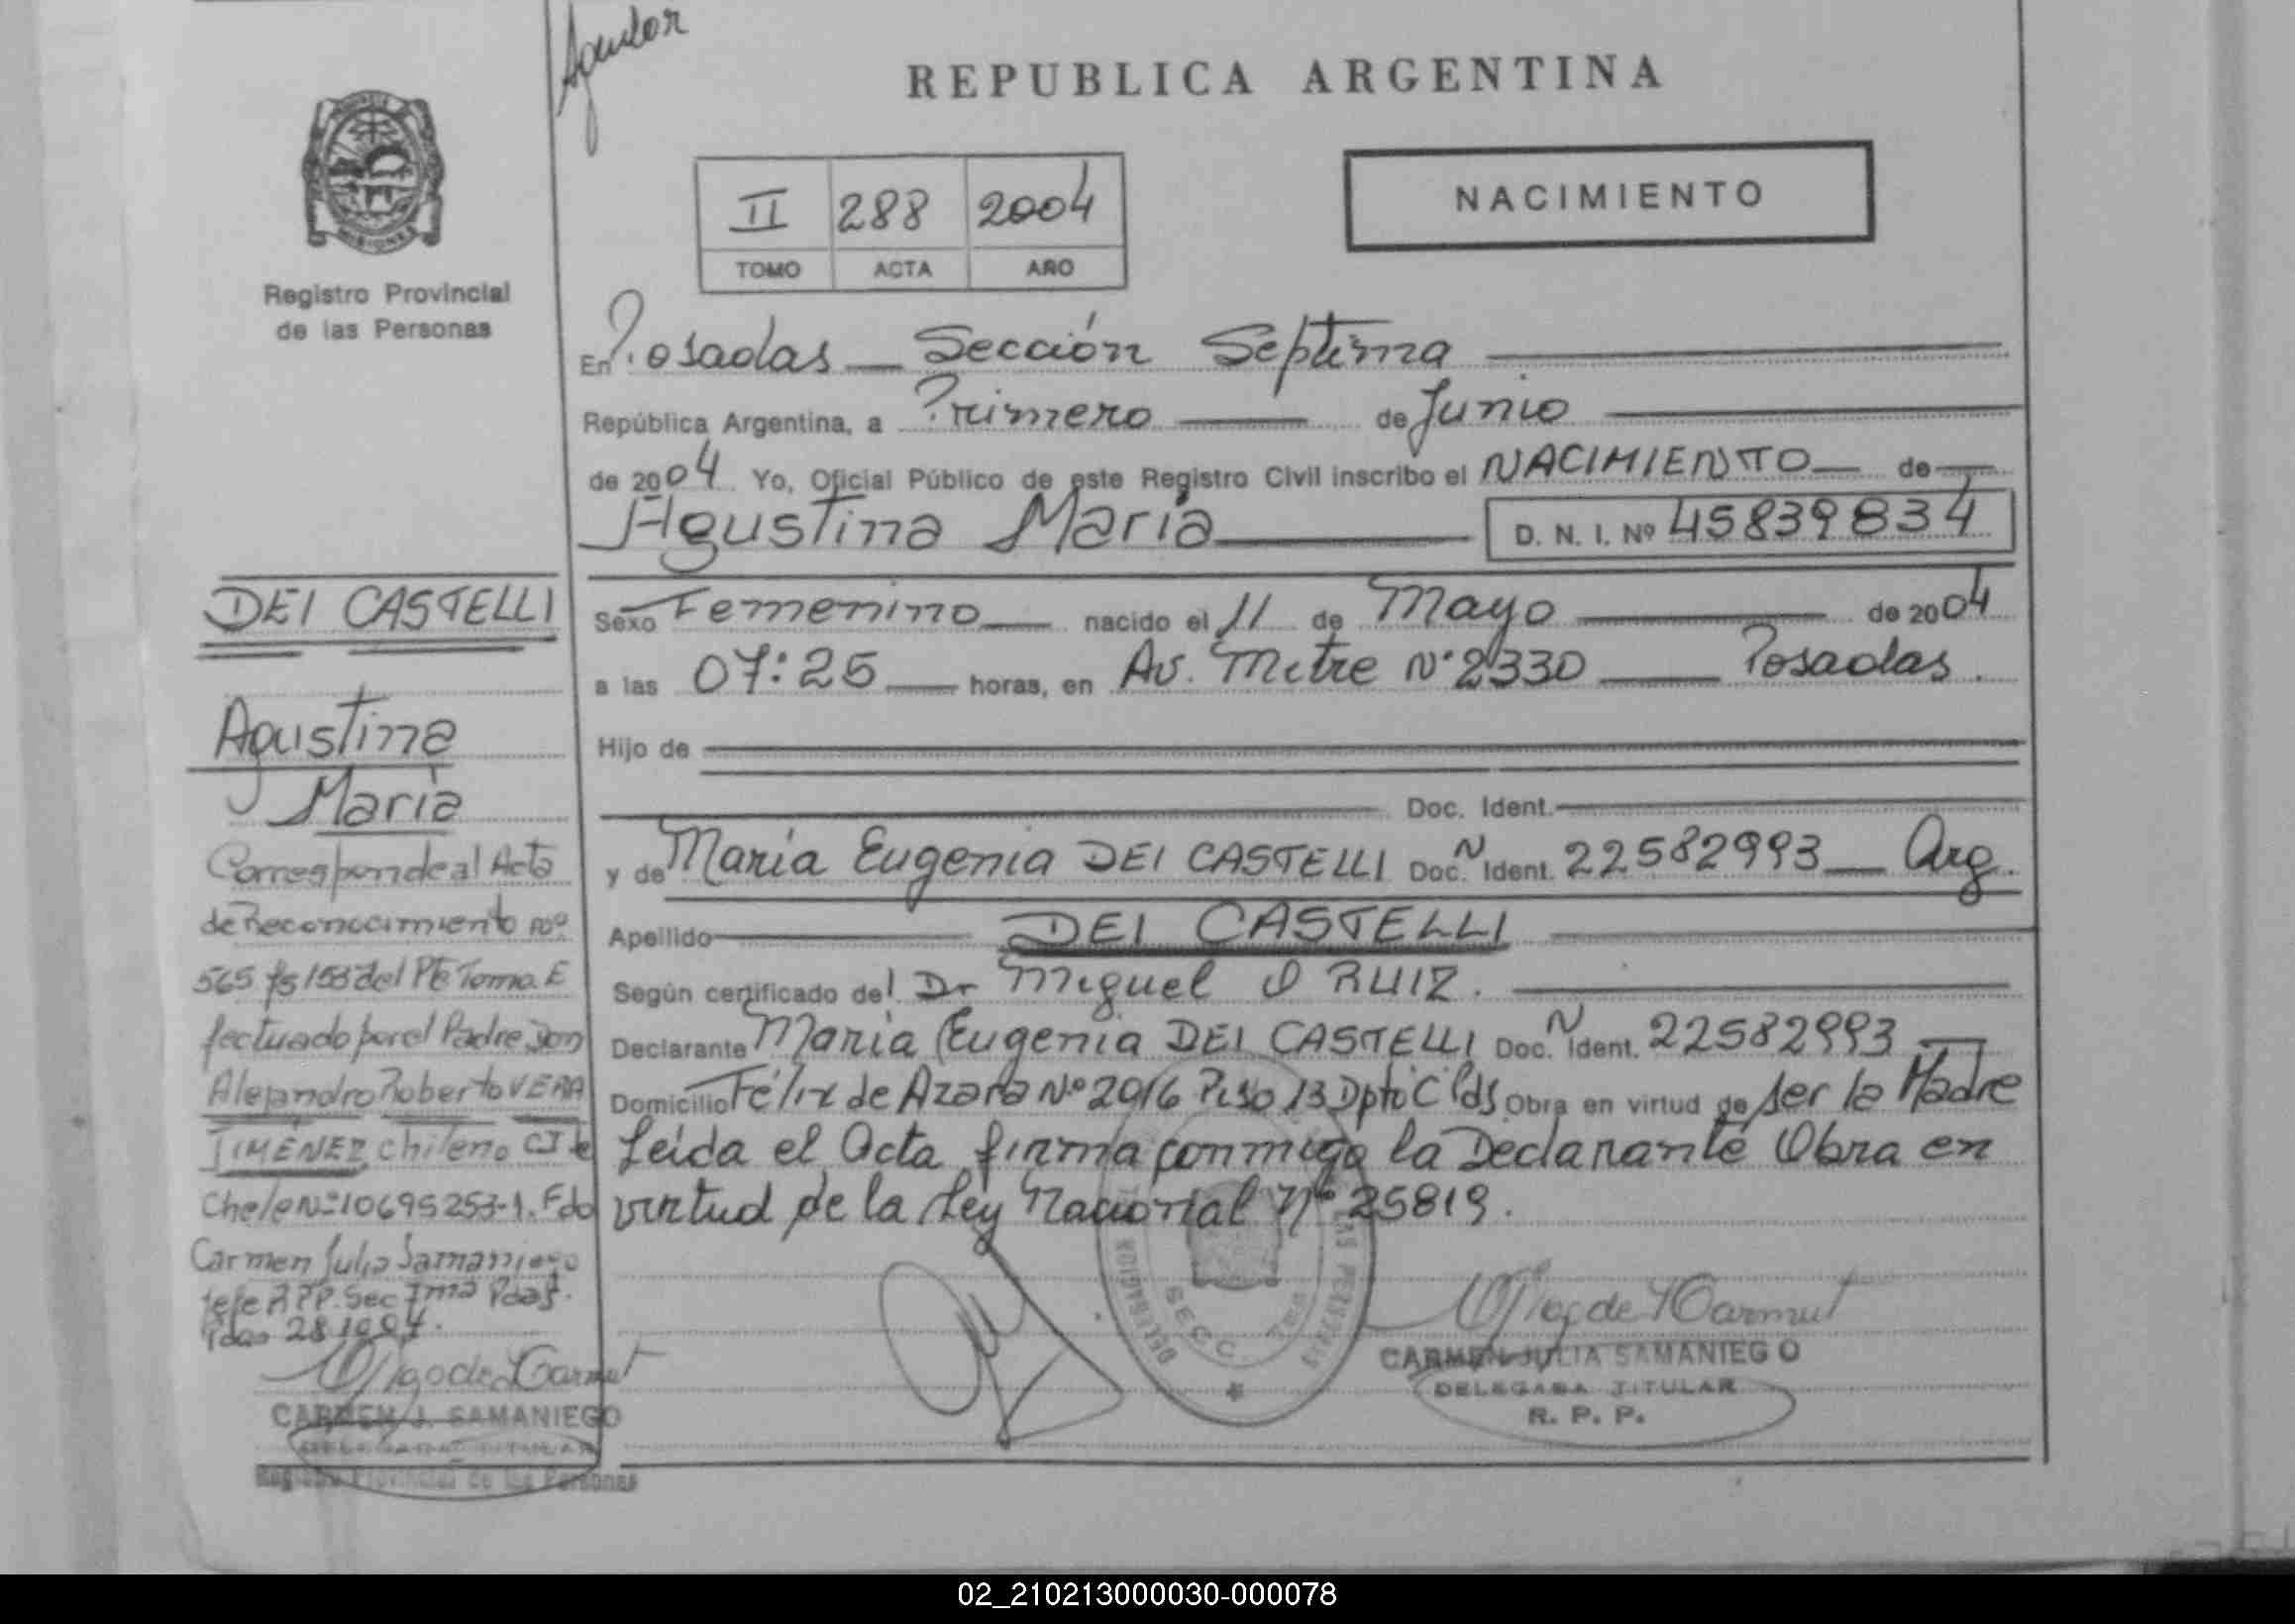 Aguilar
REPUBLICA ARGENTINA
MISIONES
Registro Provincial
de las Personas
II 288 2004
TOMO ACTA AÑO
NACIMIENTO
En Posadas — Sección Septima
República Argentina, a Primero de Junio
de 2004 Yo, Oficial Público de este Registro Civil inscribo el NACIMIENTO — de
Agustina María D. N. I. Nº 45839834
Sexo Femenino nacido el 11 de Mayo de 2004
a las 07:25 horas, en Av. Mitre Nº 2330 Posadas.
Hijo de
Doc. Ident.
y de María Eugenia DEI CASTELLI Doc. N Ident. 22582993 — Arg.
Apellido DEI CASTELLI
Según certificado del Dr Miguel O RUIZ.
Declarante María Eugenia DEI CASTELLI Doc. N Ident. 22582993
Domicilio Félix de Azara Nº 2016 Piso 13 Dpto C Pds Obra en virtud de ser la Madre
Leída el Acta firma conmigo la Declarante Obra en
virtud de la Ley Nacional Nº 25819.
CARMEN JULIA SAMANIEGO
DELEGADA TITULAR
R. P. P.
SECC. 7ma
DEI CASTELLI
Agustina
María
Corresponde al Acta
de Reconocimiento nº
565 fs 158 del Pte Tomo. E
fectuado por el Padre Don
Alejandro Roberto VERA
JIMÉNEZ Chileno CI de
Chile Nº 10695253-1. Fdo
Carmen Julia Samaniego
Jefe RPP. Sec 7ma Pdas.
Pdas 28
CARMEN J. SAMANIEGO
DELEGADA TITULAR
Registro Provincial de las Personas
02_210213000030-000078